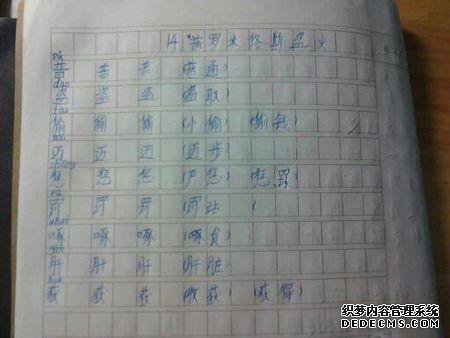 14 普罗米修斯盗火
普 普 普 (普通)
dao
盗 盗 盗 (盗取)
tou
偷 偷 偷 (小偷) (偷钱)
迈 迈 迈 (迈步)
惩 惩 惩 (严惩) (惩罚)
罚 罚 罚 (罚站) (
啄 啄 啄 (啄食)
肝 肝 肝 (肝脏)
获 获 获 (收获) (获得)
织梦内容管理系统
DEDECMS.COM